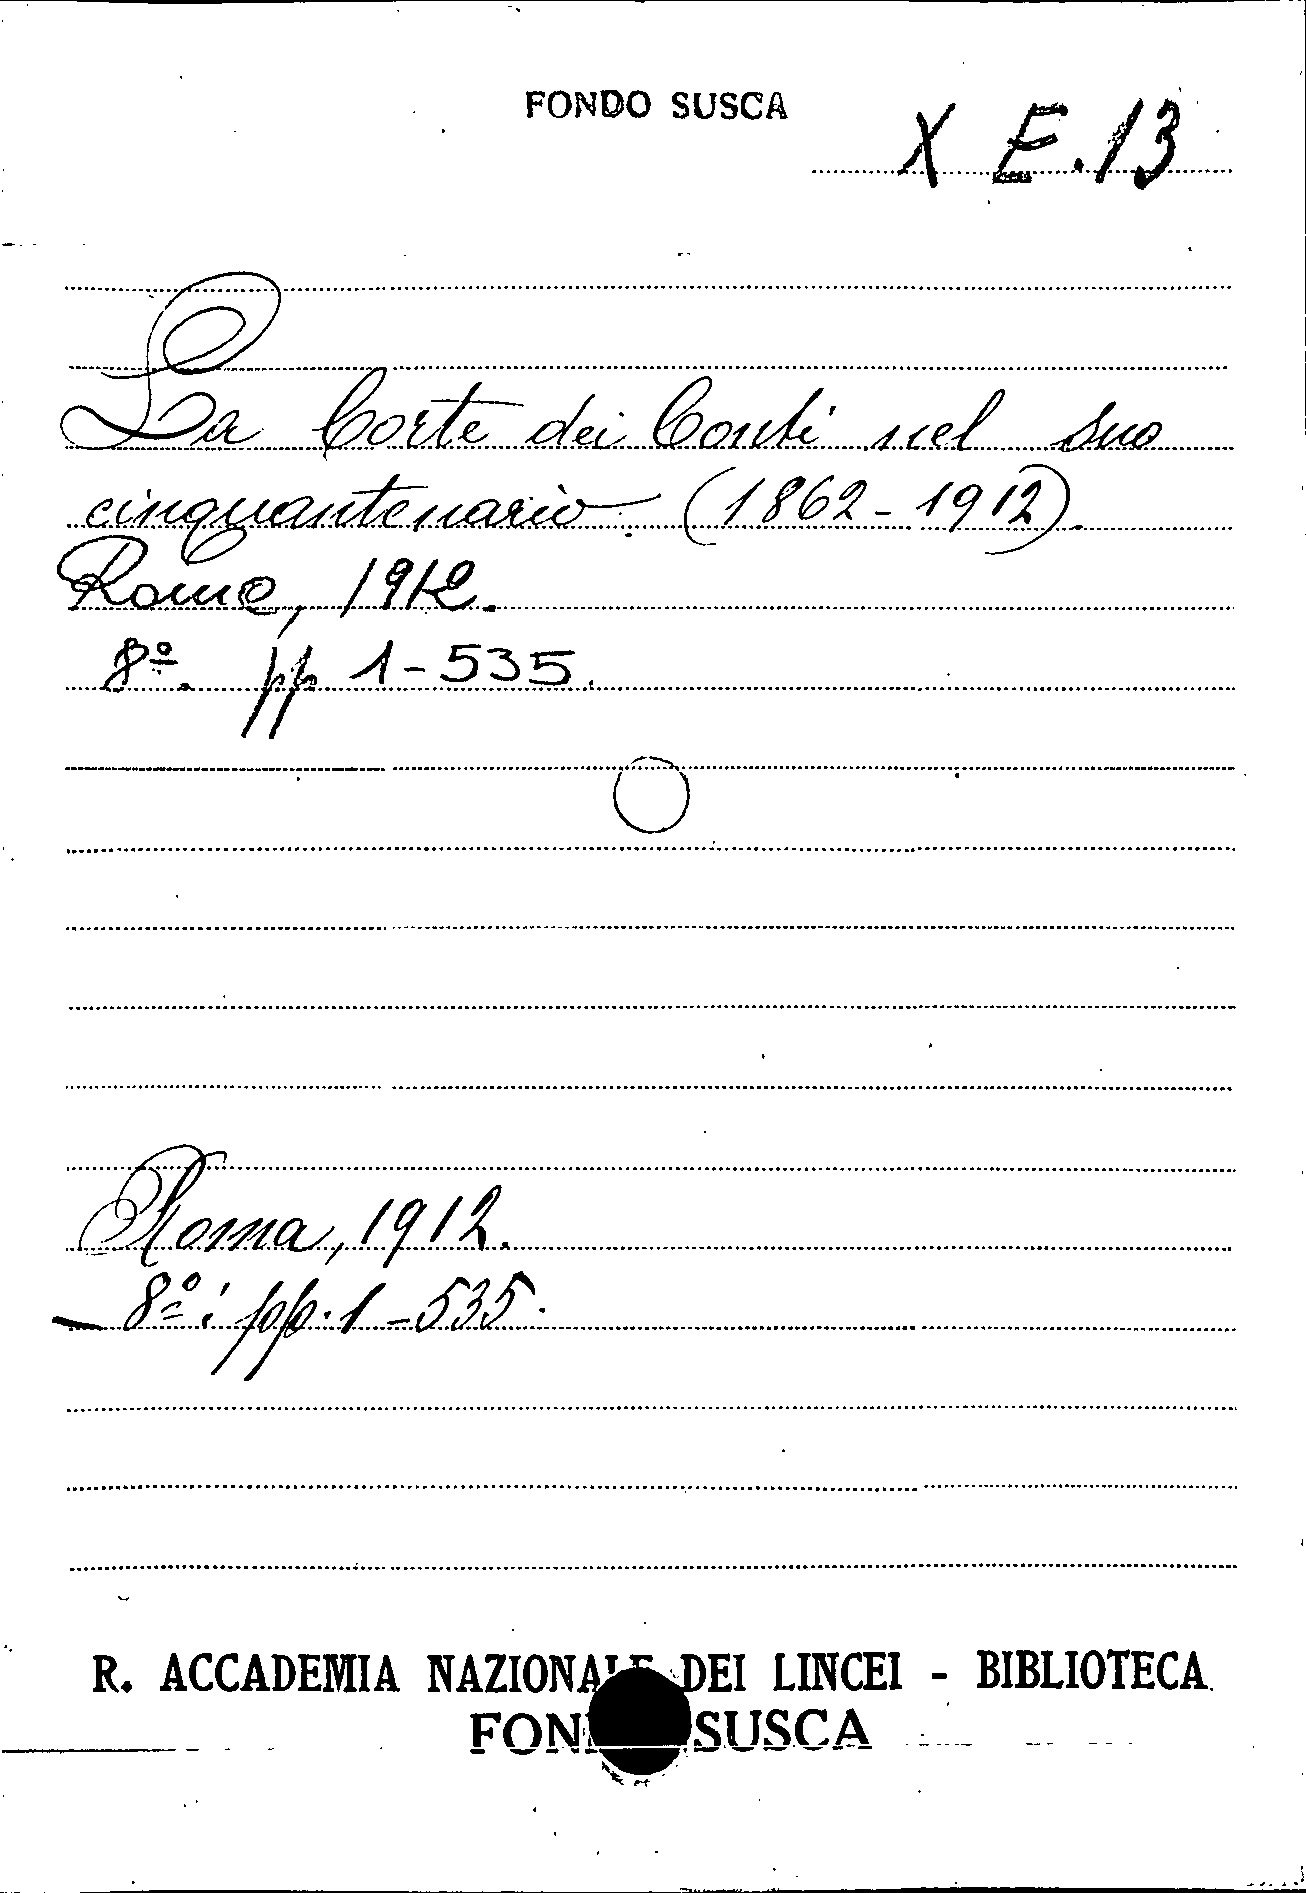 FONDO SUSCA
X E.13
La Corte dei Conti nel suo
cinquantenario (1862-1912).
Roma, 1912.
8º. pp 1-535.
Roma, 1912.
8º; pp. 1-535.
R. ACCADEMIA NAZIONALE DEI LINCEI - BIBLIOTECA
FONDO SUSCA